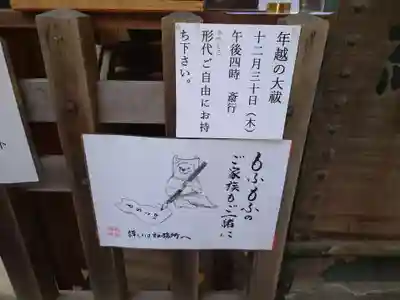 年越の大祓
十二月三十日(木)
午後四時 斎行
形代ご自由にお持
ち下さい。
もふもふの
ご家族もご一緒に
詳しくは社務所へ